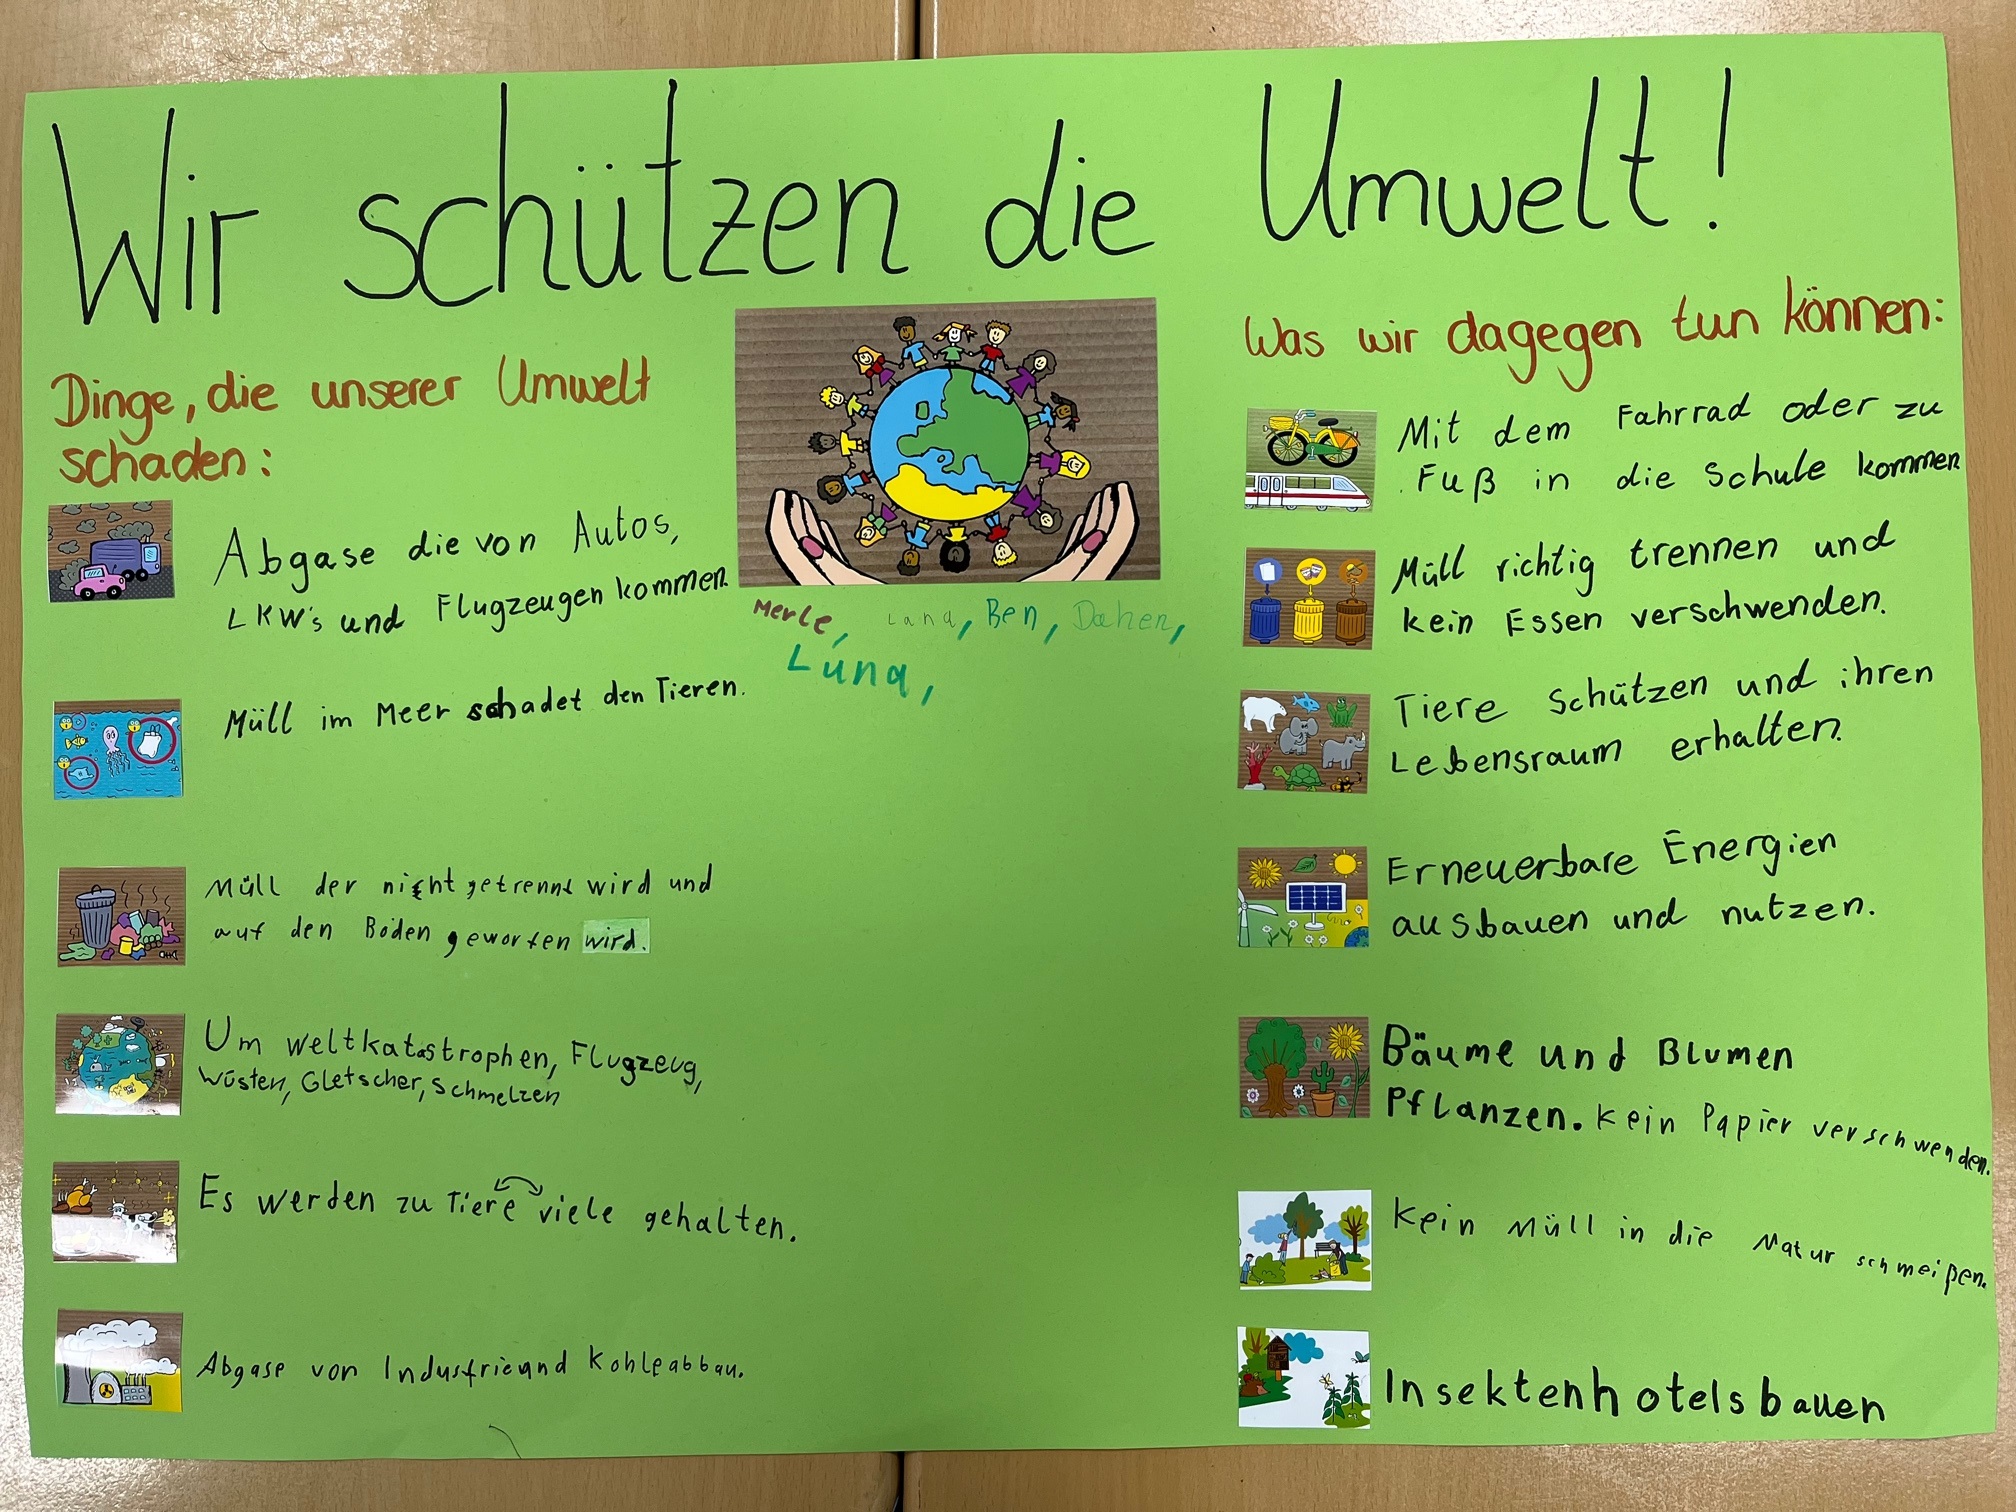 Wir schützen die Umwelt!
Dinge, die unserer Umwelt
schaden:
Abgase die von Autos,
LKW's und Flugzeugen kommen.
Müll im Meer schadet den Tieren.
Müll der nicht getrennt wird und
auf den Boden geworfen wird.
Um weltkatastrophen, Flugzeug,
Wüsten, Gletscher, schmelzen
Es werden zu Tiere viele gehalten.
Abgase von Industrie und Kohleabbau.
Merle, Lana, Ben, Dahen,
Lúna,
Was wir dagegen tun können:
Mit dem Fahrrad oder zu
Fuß in die Schule kommen
Müll richtig trennen und
kein Essen verschwenden.
Tiere Schützen und ihren
Lebensraum erhalten.
Erneuerbare Energien
ausbauen und nutzen.
Bäume und Blumen
Pflanzen. Kein Papier verschwenden.
Kein Müll in die Natur schmeißen.
Insektenhotels bauen